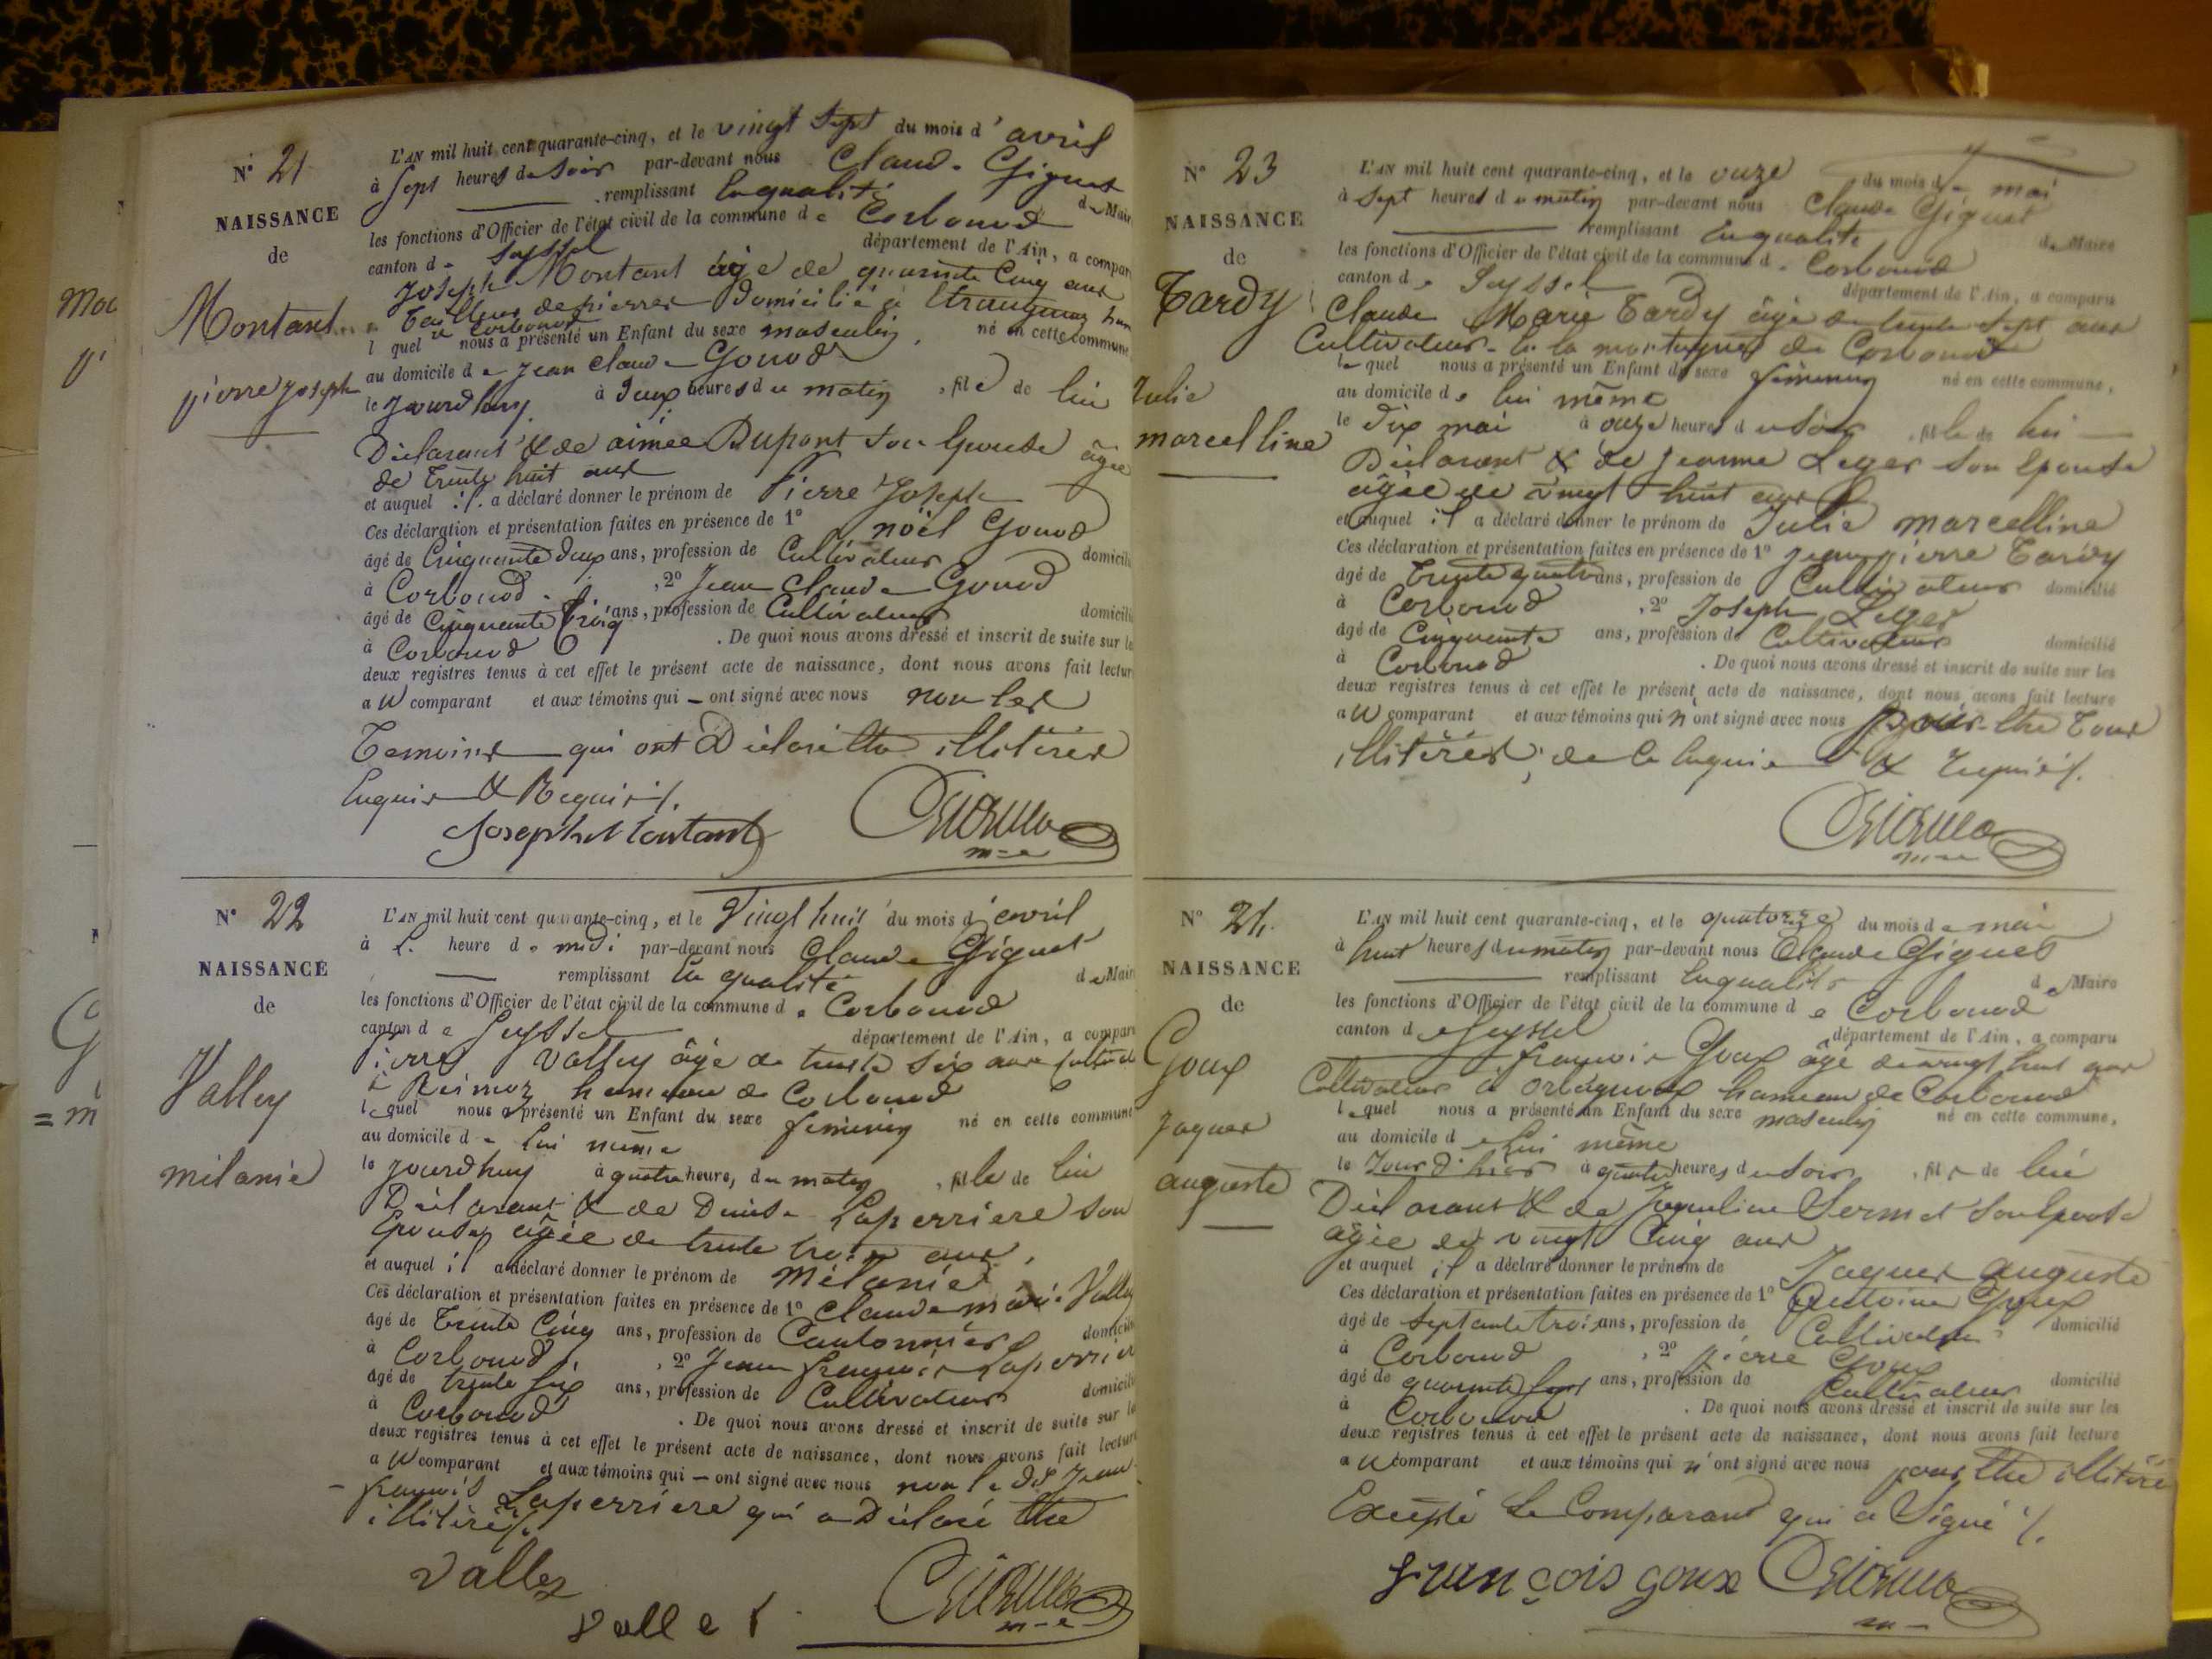 N° 21
NAISSANCE
de
Montant
pierre joseph
L'AN mil huit cent quarante-cinq, et le vingt sept du mois d'avril
à sept heures du soir par-devant nous Claude Giguet
remplissant en qualité de Maire
les fonctions d'Officier de l'état civil de la commune de Corbonod
canton de Seyssel département de l'Ain, a compar
Joseph Montant âgé de quarante cinq ans
tailleur de pierres domicilié à
à Corbonod
lequel nous a présenté un Enfant du sexe masculin, né en cette commune
au domicile de jean claude Gonod
le jourdhuy à deux heures du matin, fils de lui
Déclarant & de aimée Dupont son épouse âgée
de trente huit ans
et auquel il a déclaré donner le prénom de Pierre Joseph
Ces déclaration et présentation faites en présence de 1° noël Gonod
âgé de Cinquante deux ans, profession de Cultivateur domicilié
à Corbonod, 2° Jean Claude Gonod
âgé de Cinquante ans, profession de Cultivateur domicilié
à Corbonod. De quoi nous avons dressé et inscrit de suite sur le
deux registres tenus à cet effet le présent acte de naissance, dont nous avons fait lectur
au comparant et aux témoins qui — ont signé avec nous non les
Temoins qui ont Déclaré être illitérés
Enquis & Requis ./.
Joseph Montant
N° 22
NAISSANCE
de
Valley
mélanie
L'AN mil huit cent quarante-cinq, et le Vingt huit du mois d'avril
à heure de midi par-devant nous Claude Giguet
remplissant en qualité de Mair
les fonctions d'Officier de l'état civil de la commune de Corbonod
canton de Seyssel département de l'Ain, a compar
Pierre Valley âgé de trente six ans
à hameau de Corbonod
lequel nous a présenté un Enfant du sexe féminin né en cette commune
au domicile de lui même
le jourdhuy à quatre heures du matin, fille de lui
Déclarant & de Denise Laperriere son
Epouse, âgée de trente trois ans,
et auquel il a déclaré donner le prénom de Mélanie
Ces déclaration et présentation faites en présence de 1° Claude marie Valley
âgé de Trente Cinq ans, profession de Cantonnier domicilié
à Corbonod, 2° Jean françois Laperrier
âgé de trente six ans, profession de Cultivateur domicilié
à Corbonod. De quoi nous avons dressé et inscrit de suite sur le
deux registres tenus à cet effet le présent acte de naissance, dont nous avons fait lectur
au comparant et aux témoins qui — ont signé avec nous non le dit Jean
françois Laperriere qui a Déclaré être
illitéré ./.
Valley
N° 23
NAISSANCE
de
Tardy
Julie
marcelline
L'AN mil huit cent quarante-cinq, et le onze du mois de mai
à sept heures du matin par-devant nous Claude Giguet
remplissant en qualité de Maire
les fonctions d'Officier de l'état civil de la commune de Corbonod
canton de Seyssel département de l'Ain, a comparu
Claude Marie Tardy âgé de trente sept ans
Cultivateur à la montagne de Corbonod
lequel nous a présenté un Enfant du sexe féminin né en cette commune,
au domicile de lui même
le dix mai à onze heures du soir, fille de lui
Déclarant & de jeanne Leger son épouse
âgée de vingt huit ans
et auquel il a déclaré donner le prénom de Julie marcelline
Ces déclaration et présentation faites en présence de 1° jean pierre Tardy
âgé de trente quatre ans, profession de Cultivateur domicilié
à Corbonod, 2° Joseph Leger
âgé de Cinquante ans, profession de Cultivateur domicilié
à Corbonod. De quoi nous avons dressé et inscrit de suite sur les
deux registres tenus à cet effet le présent acte de naissance, dont nous avons fait lecture
au comparant et aux témoins qui n'ont signé avec nous pour être tous
illitérés, de ce enquis & requis ./.
N° 24
NAISSANCE
de
Goux
Jaques
auguste
L'AN mil huit cent quarante-cinq, et le quatorze du mois de mai
à huit heures du matin par-devant nous Claude Giguet
remplissant en qualité de Maire
les fonctions d'Officier de l'état civil de la commune de Corbonod
canton de Seyssel département de l'Ain, a comparu
françois Goux âgé de vingt huit ans
Cultivateur à orbagnoux hameau de Corbonod
lequel nous a présenté un Enfant du sexe masculin né en cette commune,
au domicile de lui même
le Jour d'hier à quatre heures du soir, fils de lui
Déclarant & de Jaqueline Sermet son épouse
âgée de vingt Cinq ans
et auquel il a déclaré donner le prénom de Jaques auguste
Ces déclaration et présentation faites en présence de 1° Antoine Goux
âgé de septante trois ans, profession de Cultivateur domicilié
à Corbonod, 2° pierre Goux
âgé de quarante sept ans, profession de Cultivateur domicilié
à Corbonod. De quoi nous avons dressé et inscrit de suite sur les
deux registres tenus à cet effet le présent acte de naissance, dont nous avons fait lecture
au comparant et aux témoins qui n'ont signé avec nous pour être illitéré
Excepté le Comparant qui a Signé ./.
françois goux